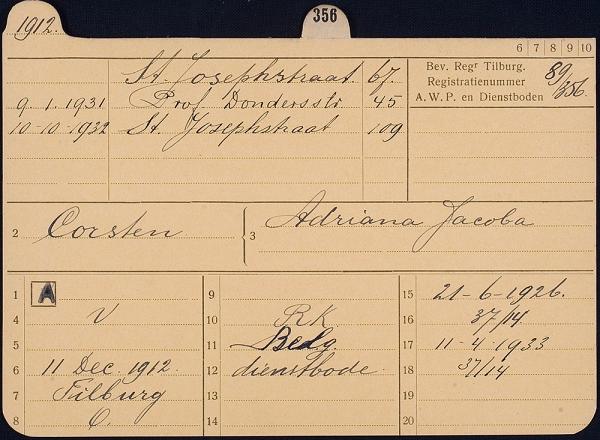 1912.
356
6 7 8 9 10
St. Josephstraat 67.
9.1.1931 Prof. Dondersstr. 45
10-10-1932 St. Josephstraat 109
Bev. Regr Tilburg.
Registratienummer 89/356.
A.W.P. en Dienstboden
2 Corsten
3 Adriana Jacoba
1 A
4 V
5
6 11 Dec. 1912.
7 Tilburg
8
9
10 R.K.
11
12 dienstbode
13
14
15 21-6-1926.
16 37/14.
17 11-4-1933
18 37/14
19
20